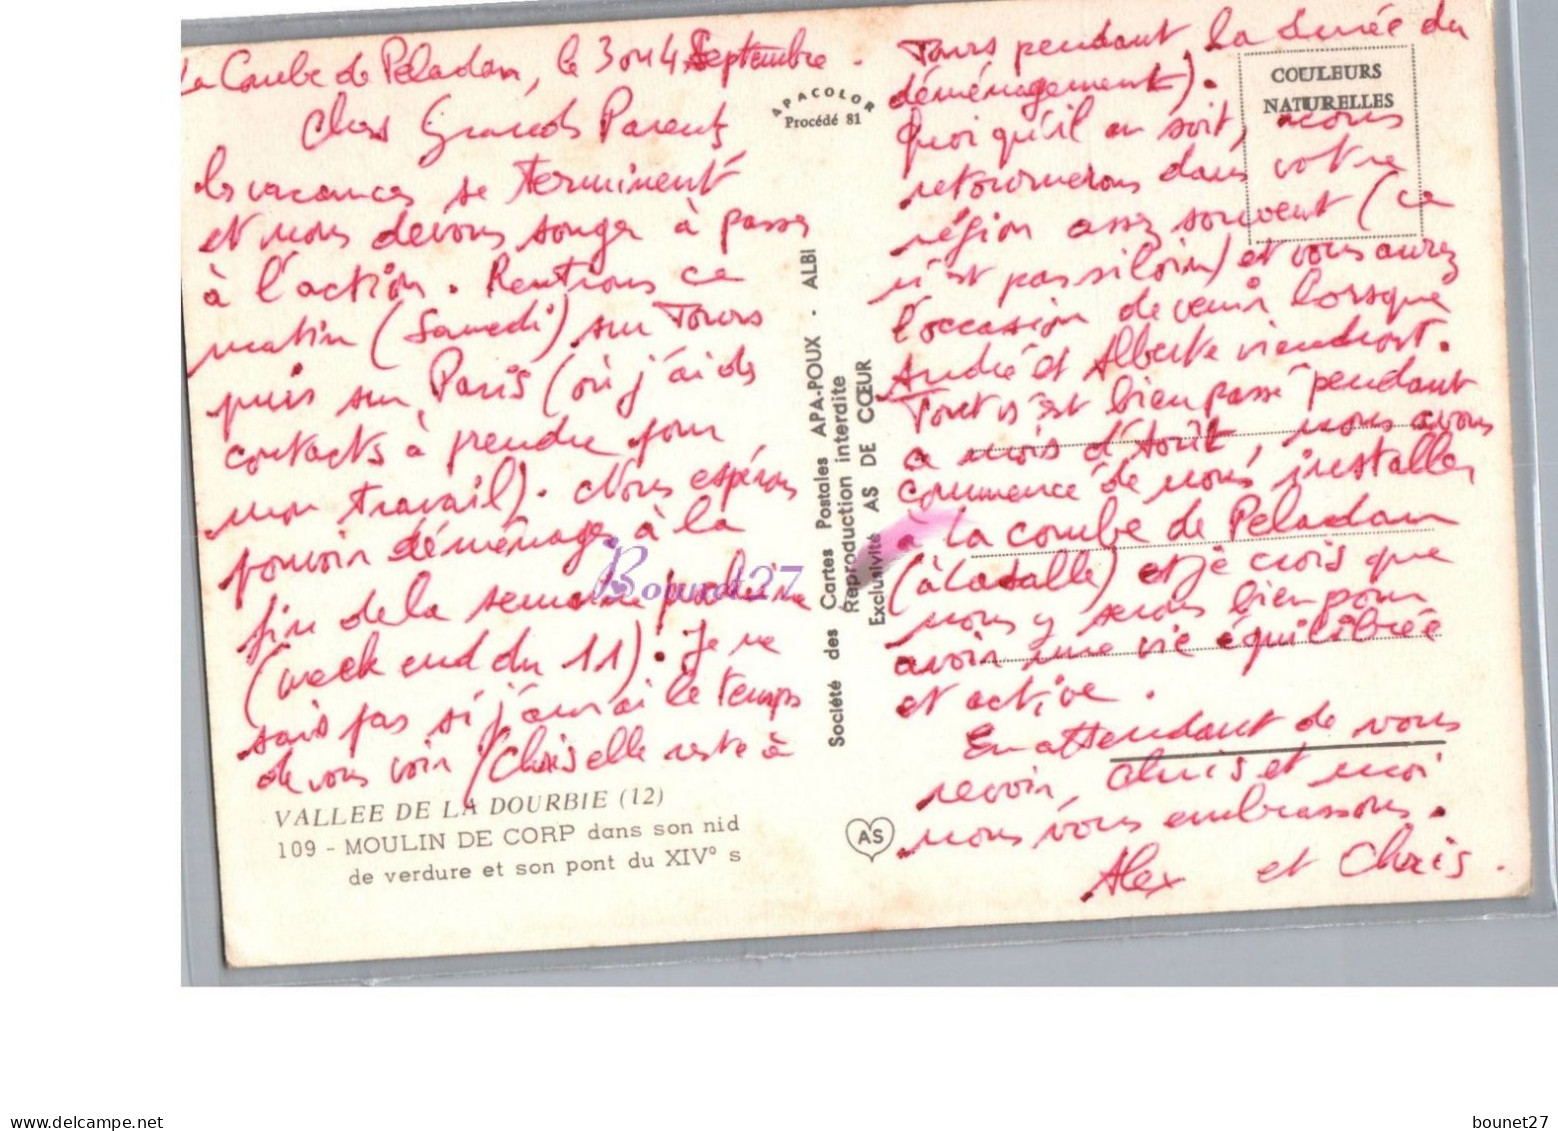 La Combe de Peladan, le 3 ou 4 Septembre.
Chers Grands Parents
les vacances se terminent
et nous devons songer à passer
à l'action. Rentrons ce
matin (Samedi) sur Tours
puis sur Paris (où j'ai des
contacts à prendre pour
mon travail). Nous espérons
pouvoir déménager à la
fin de la semaine prochaine
(week end du 11). Je ne
sais pas si j'aurai le temps
de vous voir (Chris elle reste à
VALLEE DE LA DOURBIE (12)
109 - MOULIN DE CORP dans son nid
de verdure et son pont du XIV° s
APACOLOR
Procédé 81
Société des Cartes Postales APA-POUX - ALBI
Reproduction interdite
Exclusivité AS DE CŒUR
AS
Bounet27
COULEURS
NATURELLES
Tours pendant la durée du
déménagement).
Quoi qu'il en soit, nous
retournerons dans votre
région assez souvent (ce
n'est pas si loin) et vous aurez
l'occasion de venir lorsque
André et Alberte viendront.
Tout s'est bien passé pendant
ce mois d'Août, nous avons
commencé de nous installer
à la combe de Peladan
(à Lasalle) et je crois que
nous y serons bien pour
avoir une vie équilibrée
et active.
En attendant de vous
revoir, Chris et moi
nous vous embrassons.
Alex et Chris.
delcampe.net
bounet27